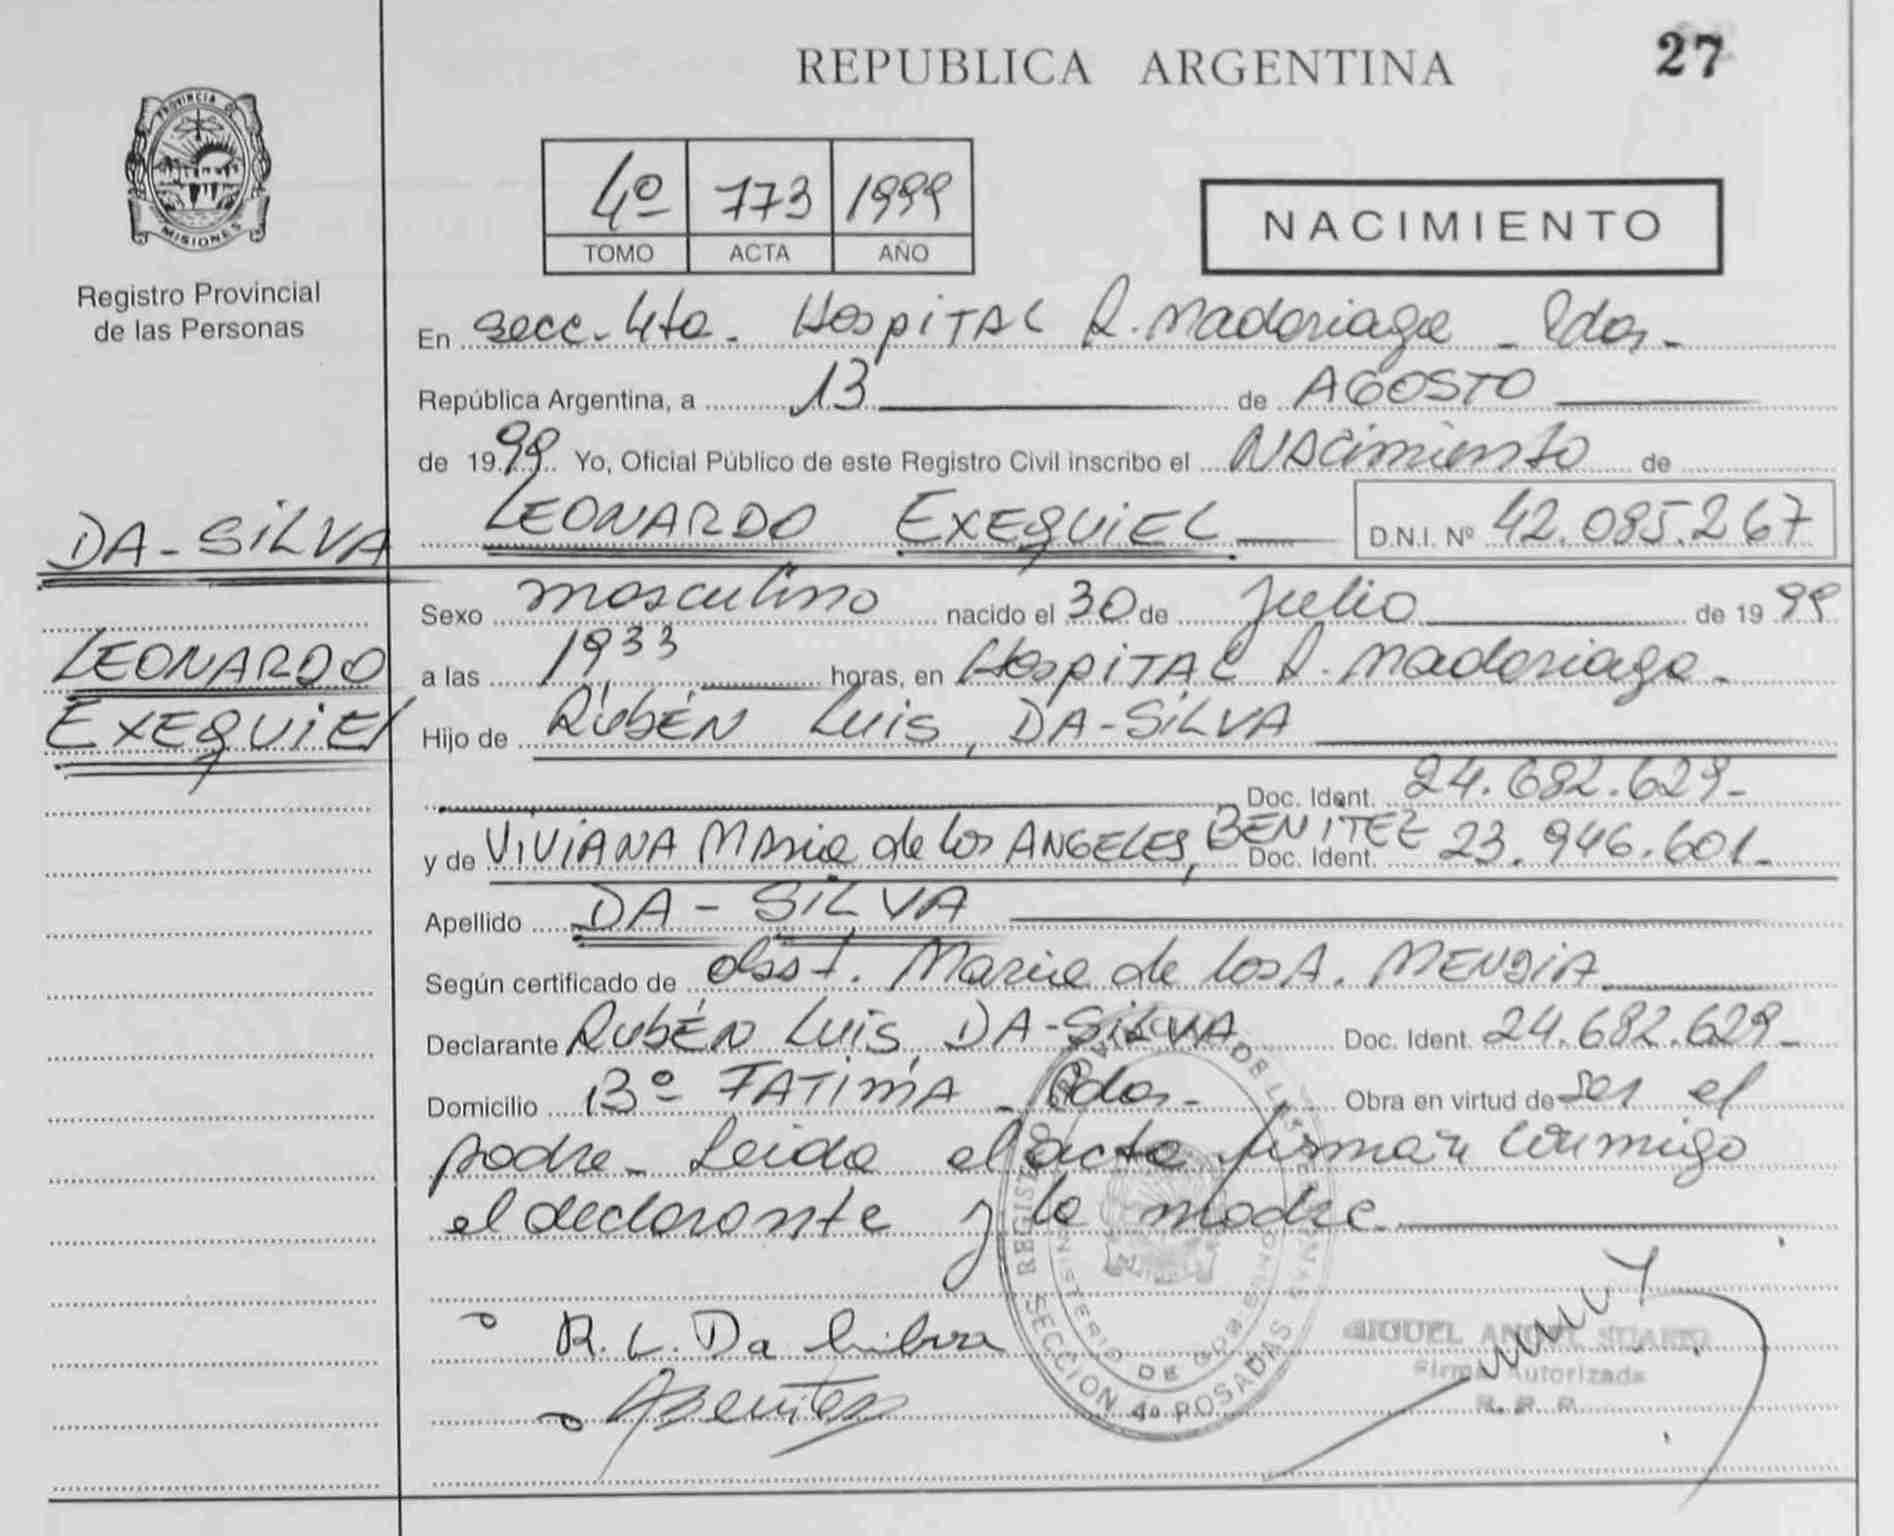 REPUBLICA ARGENTINA
27
PROVINCIA DE
MISIONES
Registro Provincial
de las Personas
4º 773 1999
TOMO ACTA AÑO
NACIMIENTO
En secc. 4ta. Hospital R. Madariaga - Pdas -
República Argentina, a 13 de AGOSTO
de 1999 Yo, Oficial Público de este Registro Civil inscribo el Nacimiento de
LEONARDO EXEQUIEL D.N.I. Nº 42.085.267
DA-SILVA
LEONARDO
EXEQUIEL
Sexo masculino nacido el 30 de Julio de 1999
a las 1933 horas, en Hospital R. Madariaga -
Hijo de Rubén Luis, DA-SILVA
Doc. Ident. 24.682.629-
y de VIVIANA María de los ANGELES, BENITEZ Doc. Ident. 23.946.601-
Apellido DA-SILVA
Según certificado de obst. María de los A. MENDIA
Declarante Rubén Luis, DA-SILVA Doc. Ident. 24.682.629-
Domicilio Bº FATIMA - Pdas - Obra en virtud de ser el
padre - Leida el acta firman conmigo
el declarante y la madre
R. L. Da Silva
REGISTRO PROVINCIAL DE LAS PERSONAS
MINISTERIO DE GOBIERNO
SECCION 4a POSADAS
MIGUEL ANGEL SUAREZ
Firma Autorizada
R. P. P.